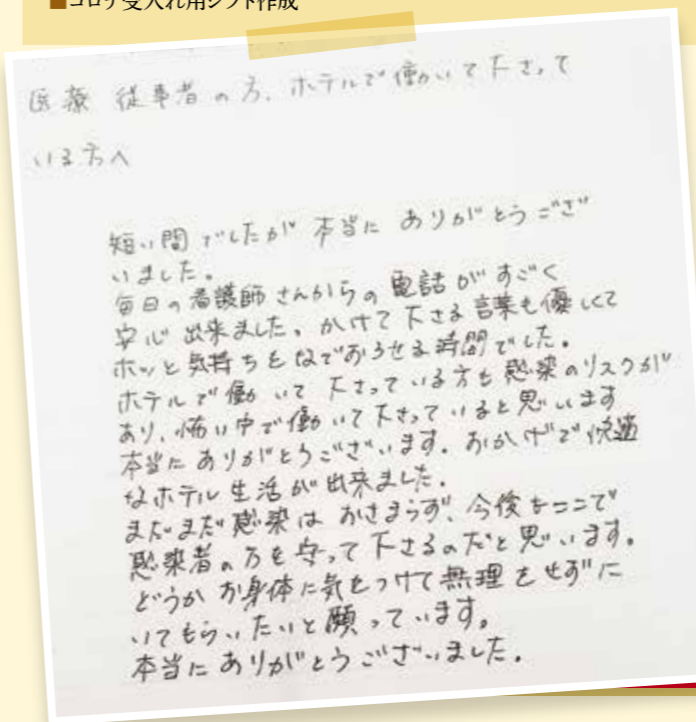 ■コロナ受入れ用シフト作成
医療 従事者の方、ホテルで働いて下さって
いる方へ
短い間でしたが 本当に ありがとうござ
いました。
毎日の看護師さんからの電話がすごく
安心出来ました。かけて下さる言葉も優しくて
ホッと気持ちをなでおろせる時間でした。
ホテルで働いて下さっている方も感染のリスクが
あり、怖い中で働いて下さっていると思います
本当にありがとうございます。おかげで快適
なホテル生活が出来ました。
まだまだ感染はおさまらず、今後もここで
感染者の方を守って下さるのだと思います。
どうかお身体に気をつけて無理をせずに
いてもらいたいと願っています。
本当にありがとうございました。